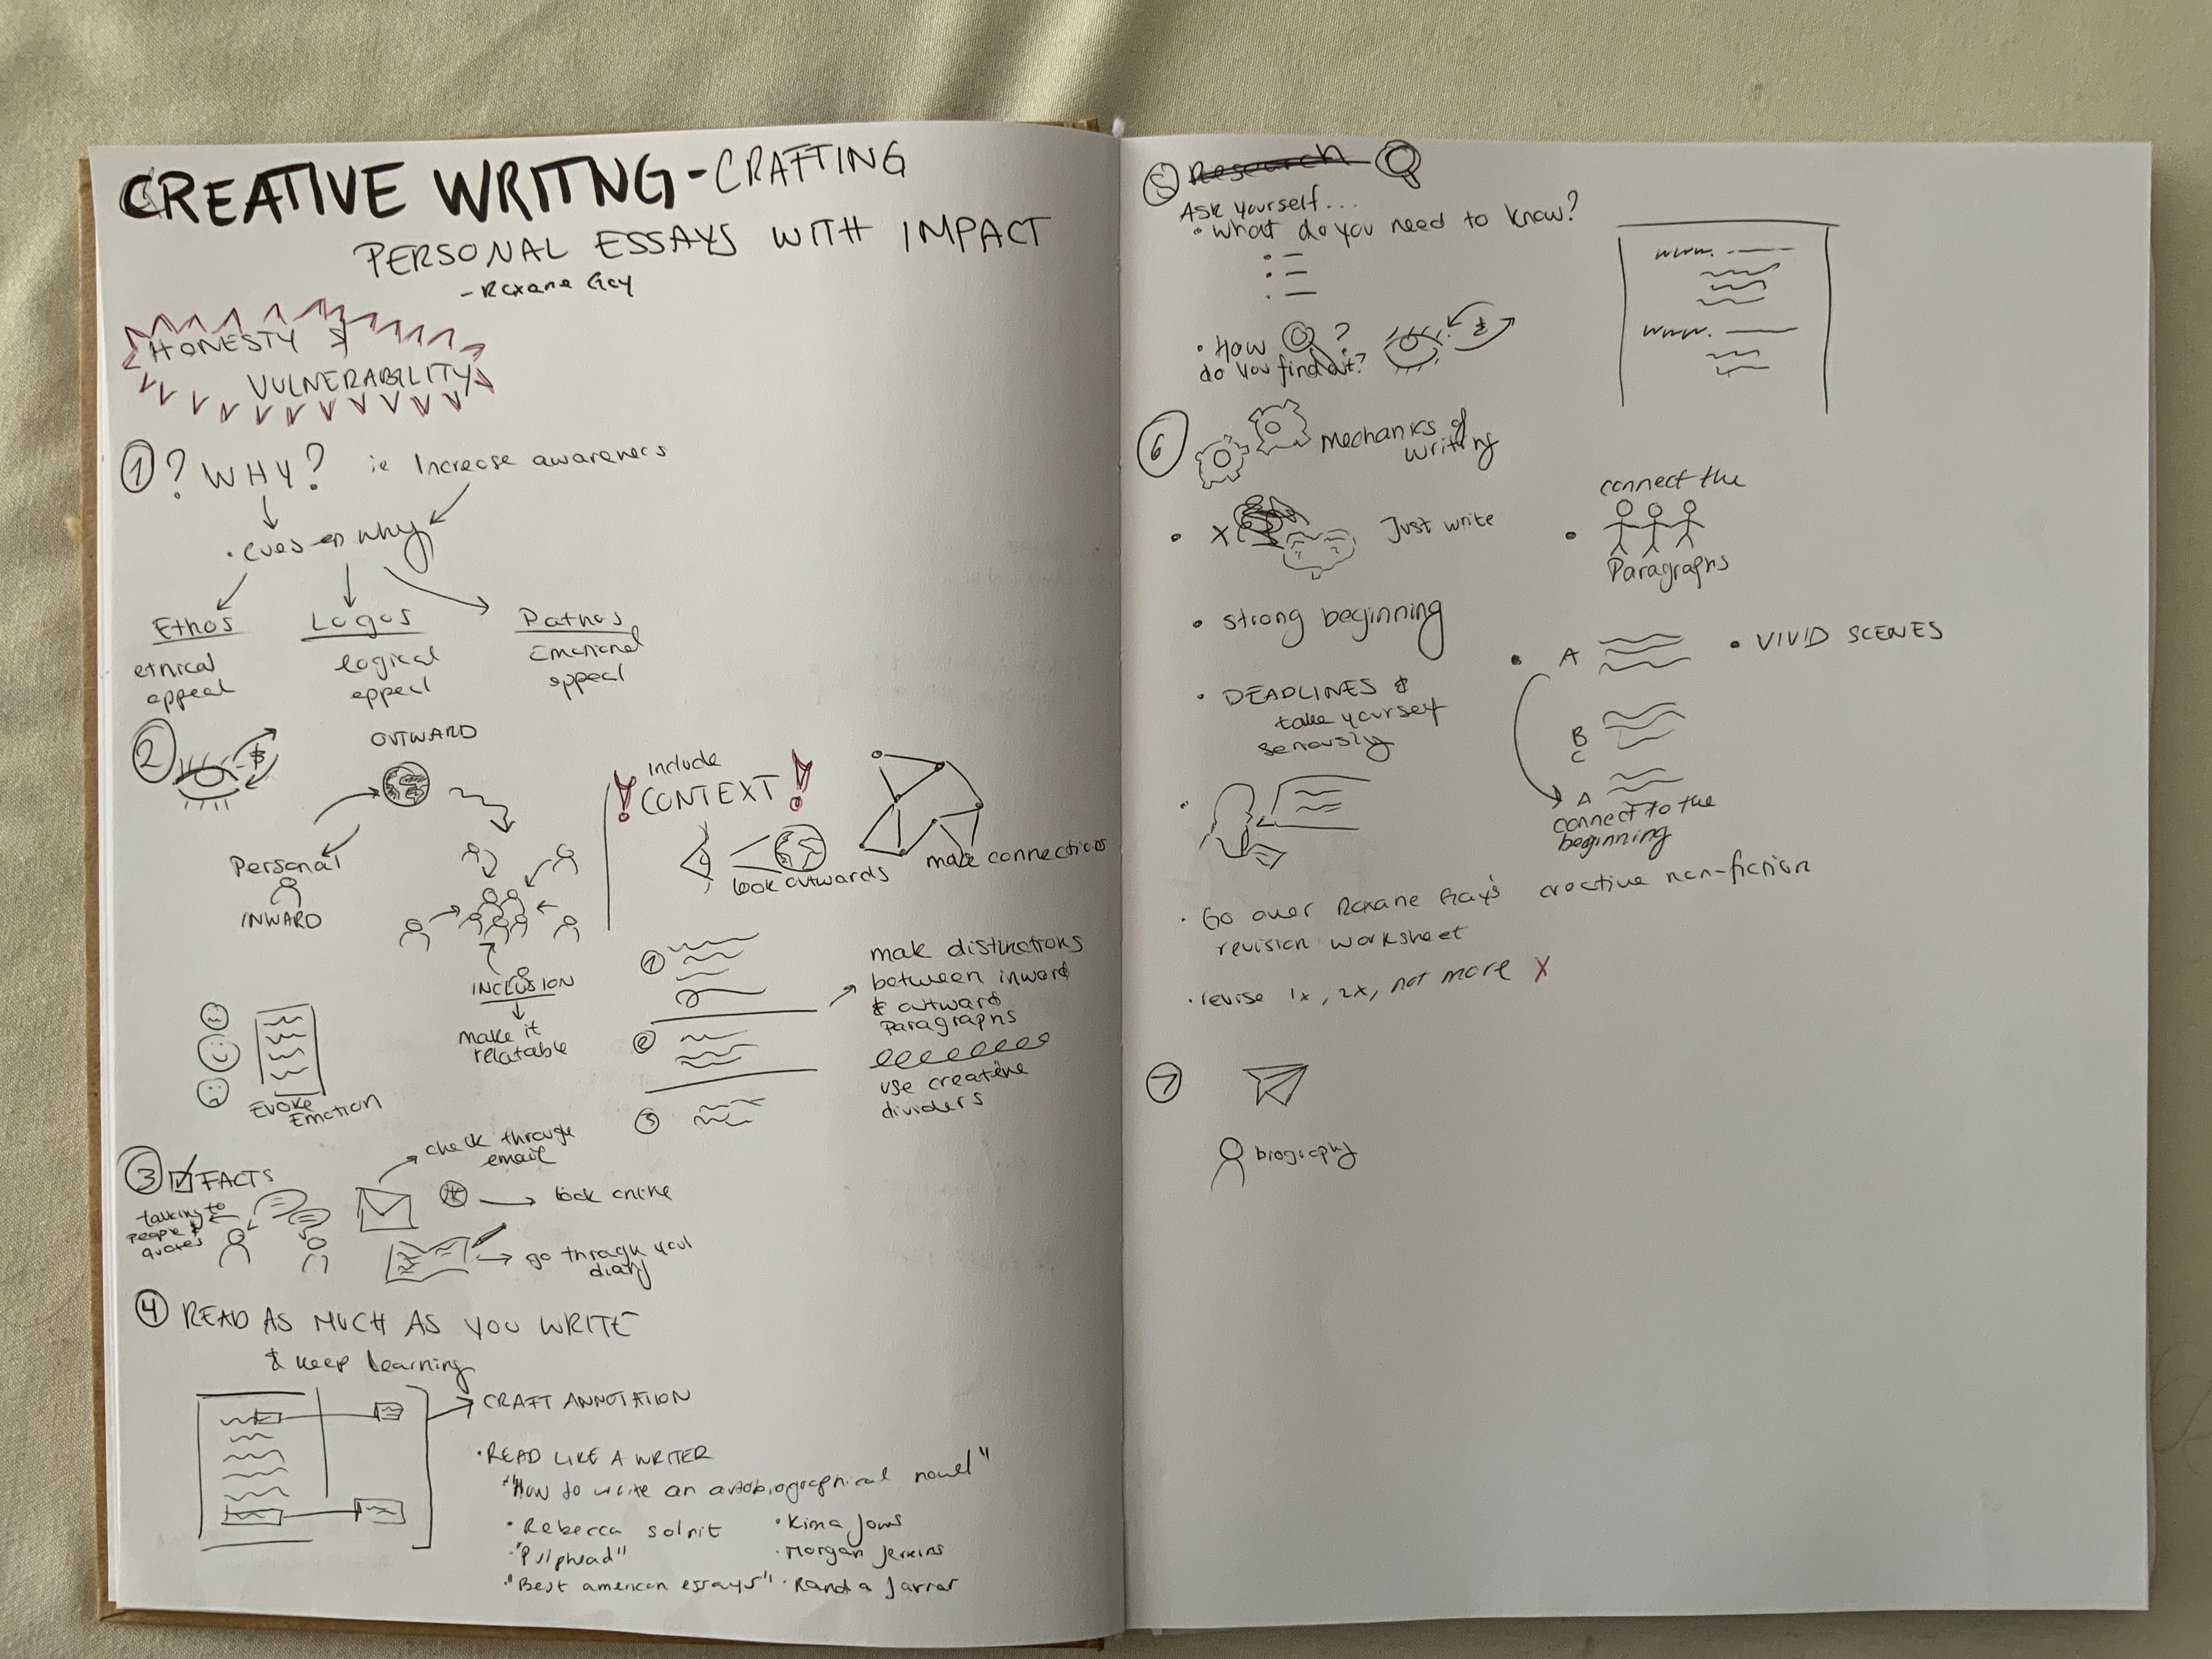 CREATIVE WRITNG - CRAFTING
PERSONAL ESSAYS WITH IMPACT
- Roxane Gay
HONESTY &
VULNERABILITY
1 ? WHY? ie Increase awareness
why
Ethos
ethical
appeal
Logos
logical
appeal
Pathos
Emotional
appeal
2
OUTWARD
Personal
INWARD
INCLUSION
make it
relatable
EVOKE
EMOTION
! include
CONTEXT !
look outwards
make connections
1
2
3
make distinctions
between inward
& outward
paragraphs
use creative
dividers
3 FACTS
talking to
people &
quotes
check through
email
look online
go through your
diary
4 READ AS MUCH AS YOU WRITE
& keep learning
CRAFT ANNOTATION
• READ LIKE A WRITER
"How to write an autobiographical novel"
• Rebecca Solnit
• "Pulphead"
• "Best american essays"
• Kima Jones
• Morgan Jerkins
• Randa Jarrar
5 Research
Ask yourself...
• What do you need to know?
• How ?
do you find out?
www.
www.
6 Mechanics of
writing
• X Just write
• connect the
Paragraphs
• strong beginning
• DEADLINES &
take yourself
seriously
• A
B
C
A
connect to the
beginning
• VIVID SCENES
• Go over Roxane Gay's creative non-fiction
revision worksheet
• revise 1x, 2x, not more X
7
biography